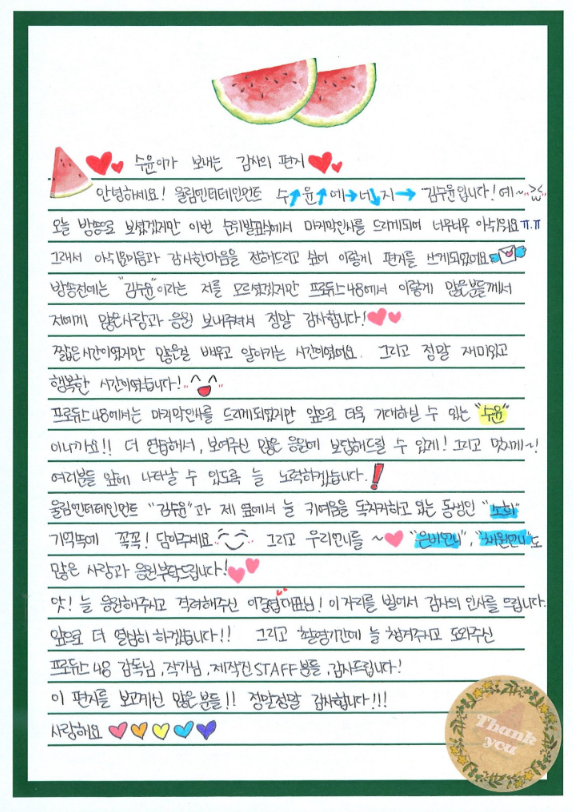 수윤이가 보내는 감사의 편지
안녕하세요! 울림엔터테인먼트 수↑윤↑에→너↓지→ "김수윤"입니다! 예~
오늘 방송으로 보셨겠지만 이번 순위발표식에서 마지막인사를 드리게되어 너무너무 아쉬워요ㅠ.ㅠ
그래서 아쉬운마음과 감사한마음을 전해드리고 싶어 이렇게 편지를 쓰게되었어요
방송전에는 "김수윤"이라는 저를 모르셨겠지만 프로듀스48에서 이렇게 많은분들께서
저에게 많은사랑과 응원 보내주셔서 정말 감사합니다!
짧은시간이였지만 많은걸 배우고 알아가는 시간이였어요. 그리고 정말 재미있고
행복한 시간이였습니다!
프로듀스48에서는 마지막인사를 드리게되었지만 앞으로 더욱 기대하실 수 있는 "수윤"
이니까요!! 더 연습해서, 보여주신 많은 응원에 보답해드릴 수 있게! 그리고 멋지게~!
여러분들 앞에 나타날 수 있도록 늘 노력하겠습니다.!
울림엔터테인먼트 "김수윤"과 제 옆에서 늘 귀여움을 독차지하고 있는 동생인 "소희"
기억속에 꼭꼭! 담아주세요. 그리고 우리언니들 ~ "은비언니", "채원언니"도
많은 사랑과 응원부탁드립니다!
앗! 늘 응원해주시고 격려해주신 이중엽대표님! 이 자리를 빌어서 감사의 인사를 드립니다.
앞으로 더 열심히 하겠습니다!! 그리고 촬영기간에 늘 챙겨주시고 도와주신
프로듀스48 감독님, 작가님, 제작진STAFF분들, 감사드립니다!
이 편지를 보고계신 많은분들!! 정말정말 감사합니다!!!
사랑해요
Thank
you